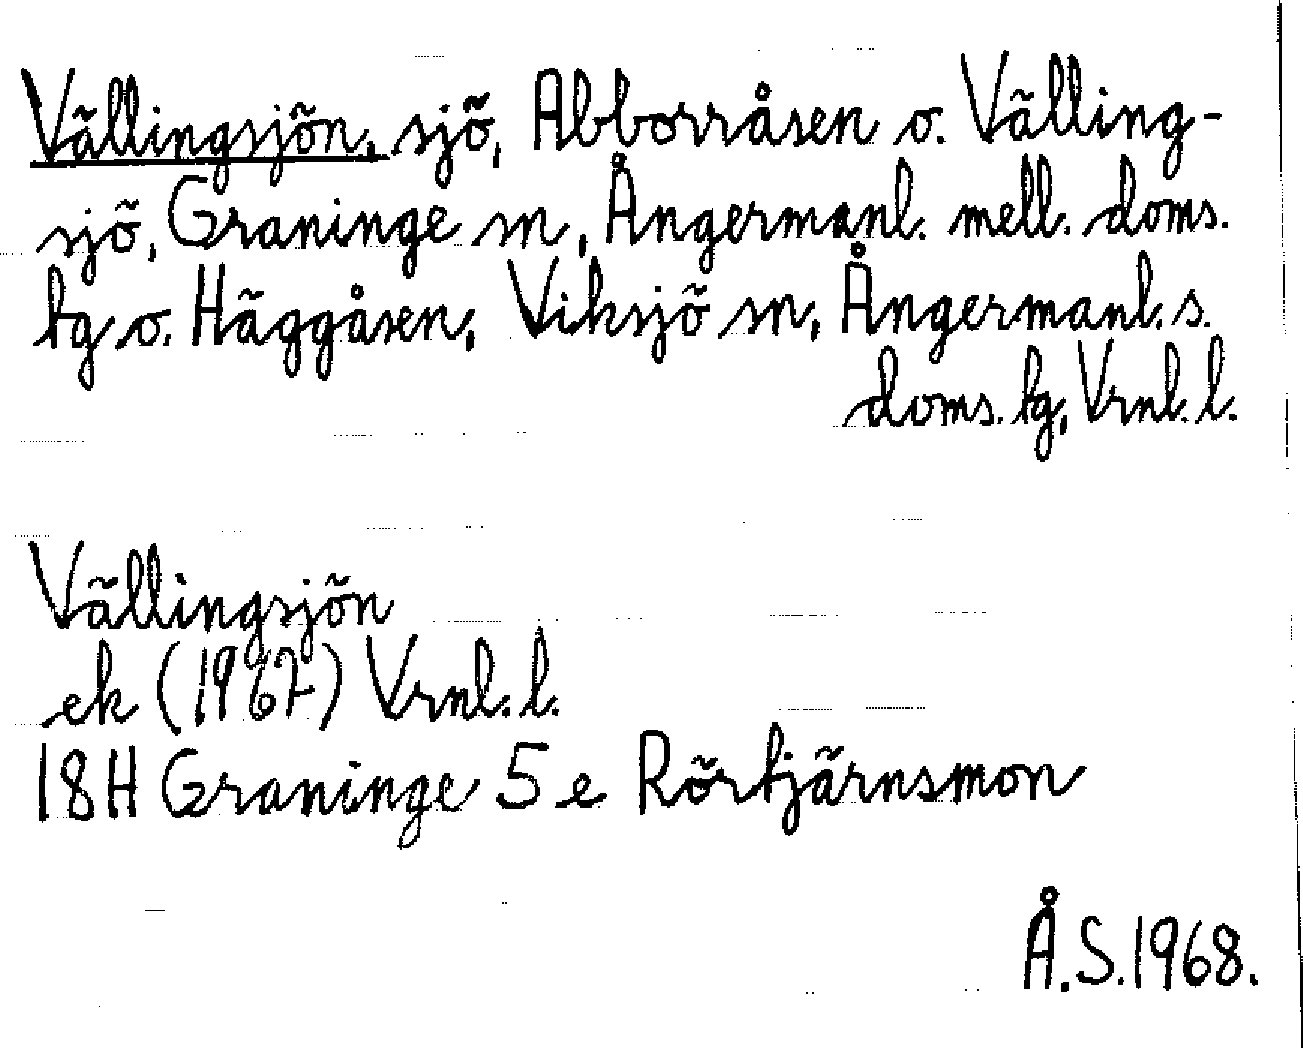 Vällingsjön, sjö, Abborråsen o. Välling-
sjö, Graninge sn, Ångermanl. mell. doms.
tg o. Häggåsen, Viksjö sn, Ångermanl. s.
doms. tg, Vrnl. l.
Vällingsjön
ek (1967) Vrnl. l.
18H Graninge 5 e Rörtjärnsmon
Å.S. 1968.